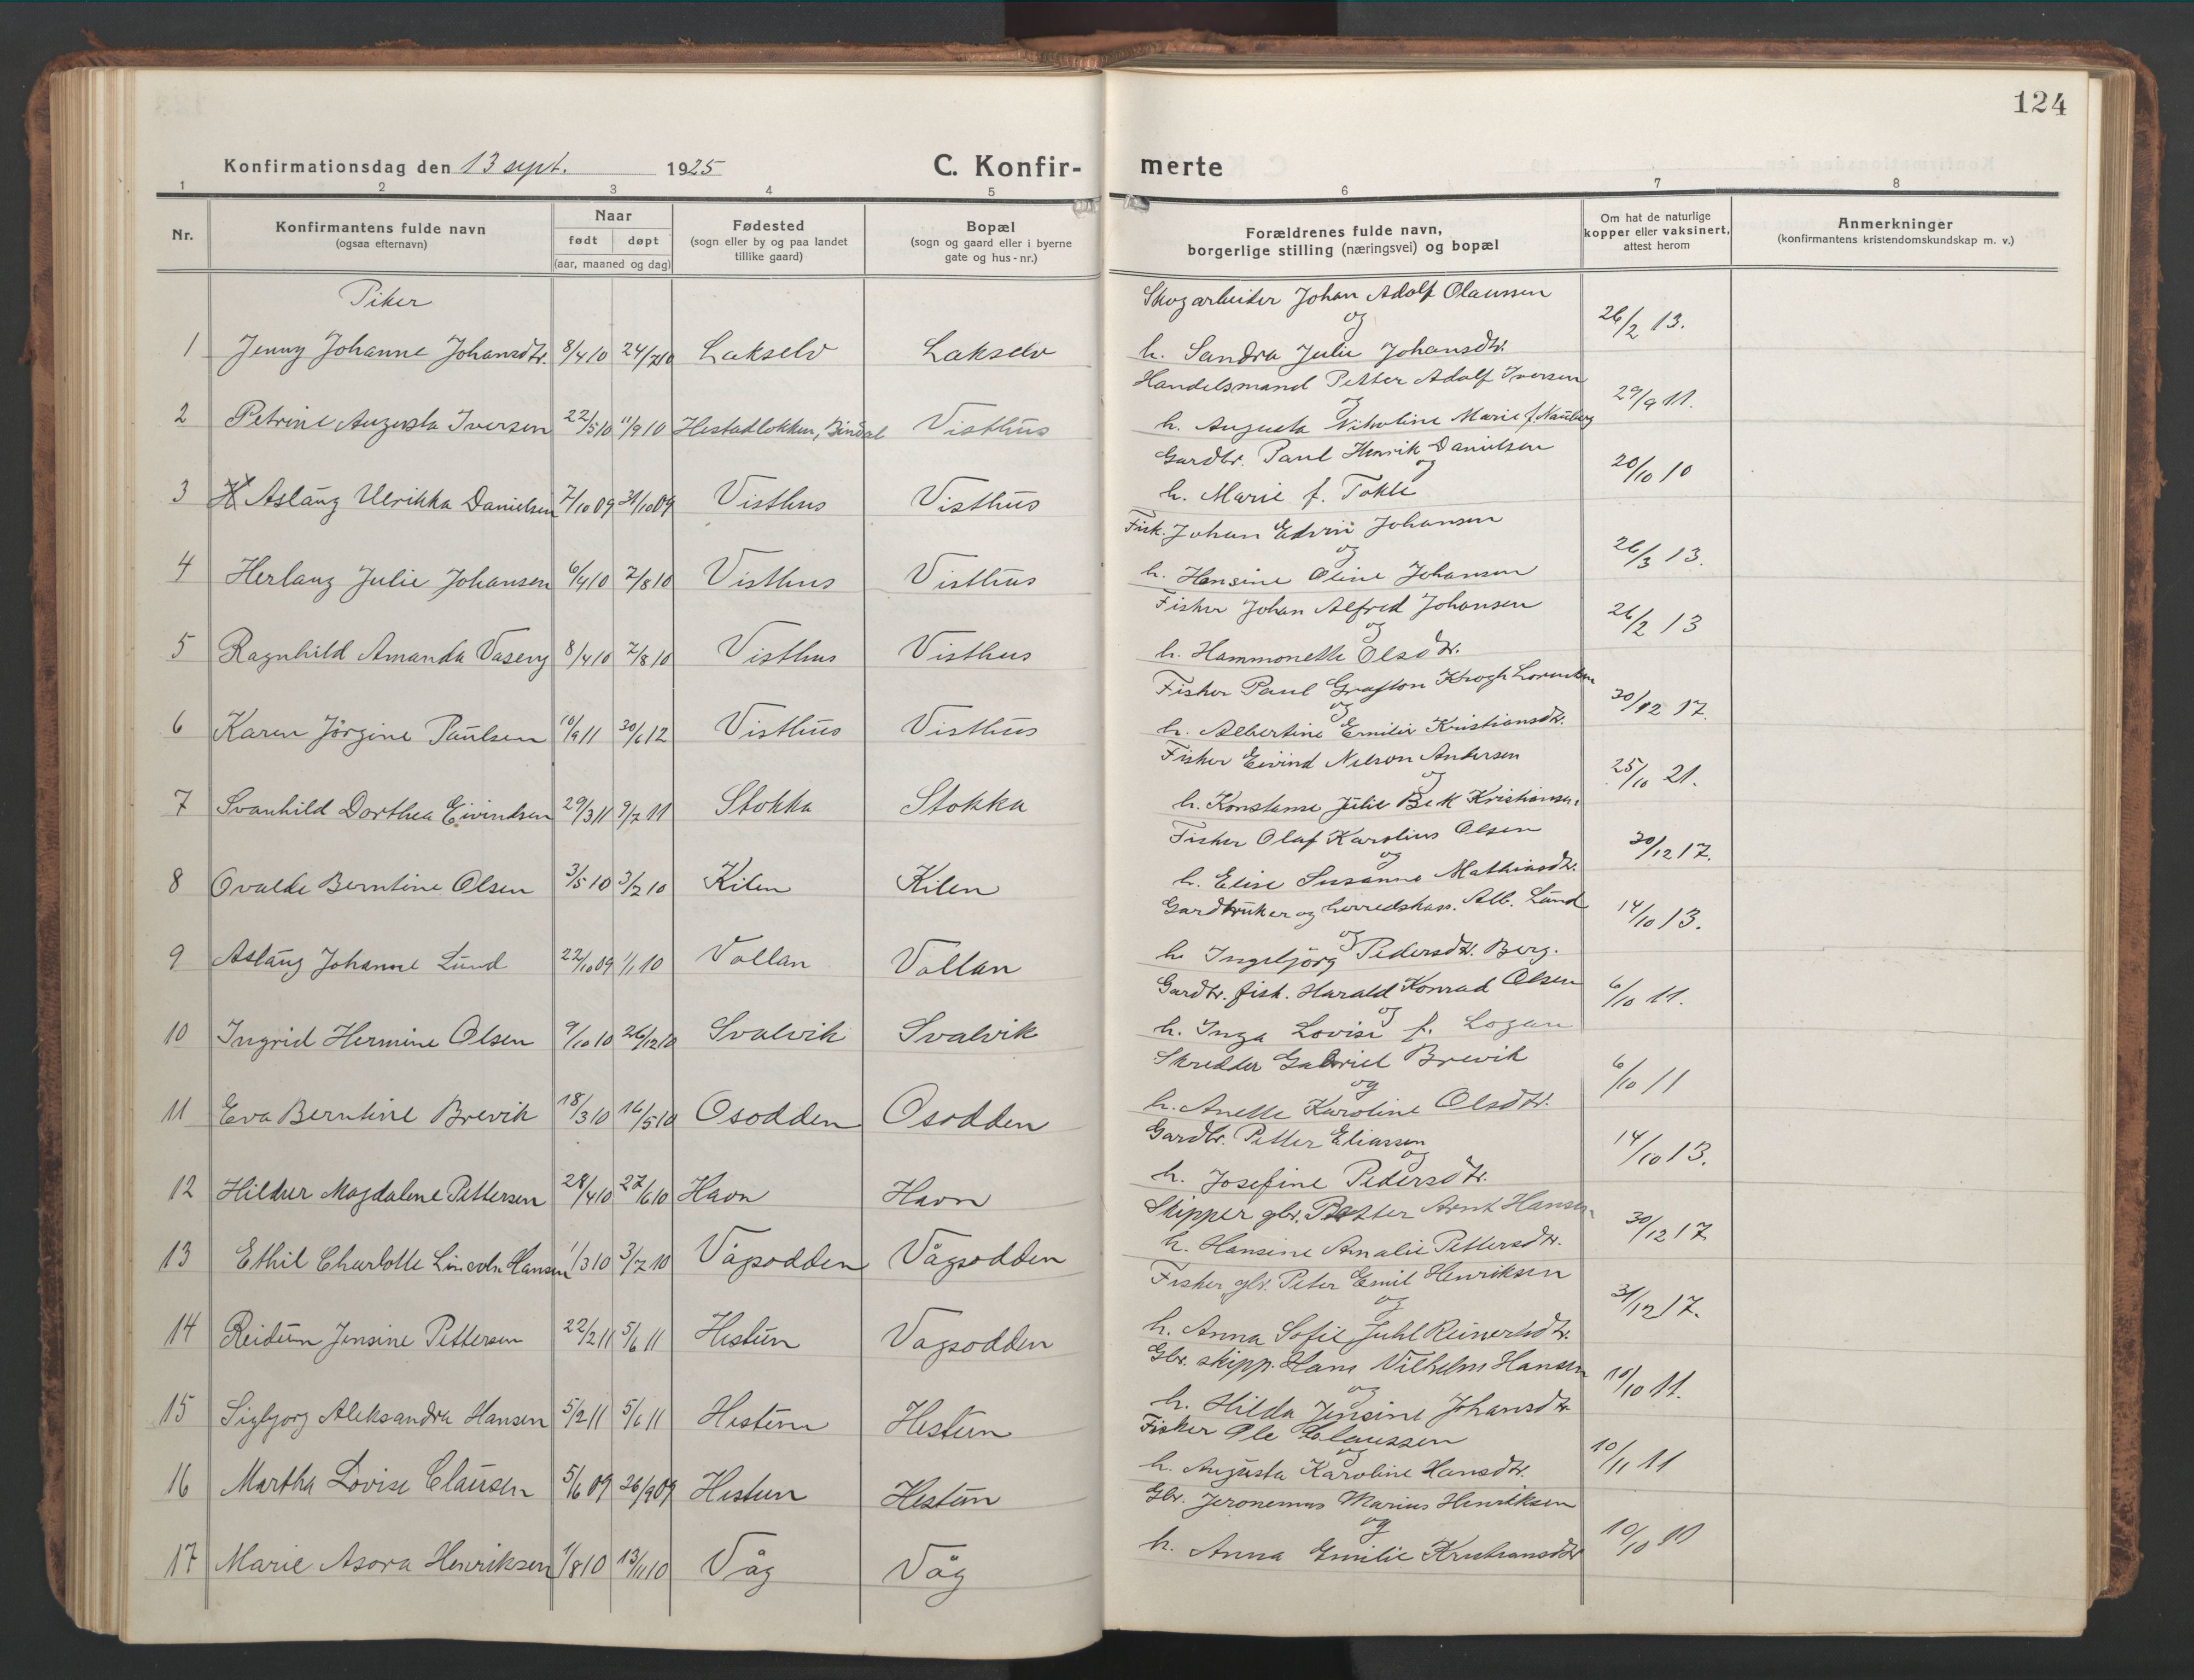 124
Konfirmationsdag den 13 sept. 1925
C. Konfir-
merte
1 2 3 4 5 6 7 8
Nr.
Konfirmantens fulde navn
(ogsaa efternavn)
Naar
født døpt
(aar, maaned og dag)
Fødested
(sogn eller by og paa landet
tillike gaard)
Bopæl
(sogn og gaard eller i byerne
gate og hus-nr.)
Forældrenes fulde navn,
borgerlige stilling (næringsvei) og bopæl
Om hat de naturlige
kopper eller vaksinert,
attest herom
Anmerkninger
(konfirmantens kristendomskundskap m. v.)
Piker
Skogarbeider Johan Adolf Olaussen
og
1 Jenny Johanne Johansdtr. 8/4 10 24/7 10 Lakselv Lakselv h. Sandra Julie Johansdtr. 26/2 13.
Handelsmand Petter Adolf Iversen
og
2 Petrine Augusta Iversen 22/5 10 11/9 10 Hestadlokken, Bindal Visthus h. Augusta Nikoline Marie f. 29/9 11.
Gardbr. Paul Henrik Danielsen
og
3 Aslaug Ulrikka Danielsen 7/10 09 31/10 09 Visthus Visthus h. Marie f. Tokle 20/10 10
Fisk. Johan Edvin Johansen
og
4 Herlaug Julie Johansen 6/4 10 7/8 10 Visthus Visthus h. Hansine Oline Johansen 26/3 13.
Fisker Johan Alfred Johansen
og
5 Ragnhild Amanda Vaseng 8/4 10 7/8 10 Visthus Visthus h. Hammonette Olsdtr. 26/2 13
Fisker Paul Grafton Krogh Lorentsen
og
6 Karen Jörgine Paulsen 10/9 11 30/6 12 Visthus Visthus h. Albertine Emilie Kristiansdtr. 30/12 17.
Fisker Eivind Nelson Andersen
og
7 Svanhild Dorthea Eivindsen 29/3 11 9/7 11 Stokka Stokka h. Konstanse Julie Bek Kristiansen. 25/10 21.
Fisker Olaf Karolius Olsen
og
8 Ovalde Berntine Olsen 3/5 10 3/7 10 Kilen Kilen h. Elise Susanna Mathiasdtr. 30/12 17.
Gardbruker og herredskass. Alb. Lund
og
9 Aslaug Johanne Lund 22/10 09 1/1 10 Vollan Vollan h. Ingebjörg Pedersdtr. Berg. 14/10 13.
Gardbr. fisk. Harald Konrad Olsen
og
10 Ingrid Hermine Olsen 9/10 10 26/12 10 Svalvik Svalvik h. Inga Lovise f. Logan 6/10 11.
Skredder Gabriel Brevik
og
11 Eva Berntine Brevik 18/3 10 16/5 10 Osodden Osodden h. Anette Karoline Olsdtr. 6/10 11
Gardbr. Petter Eliassen
og
12 Hildur Magdalene Pettersen 28/4 10 27/6 10 Havn Havn h. Josefine Pedersdtr. 14/10 13.
Skipper gbr. Petter Arnt Hansen
13 Ethil Charlotte Lincoln Hansen 1/3 10 3/7 10 Vågsodden Vågsodden h. Hansine Amalie Pettersdtr. 30/12 17
Fisker, gbr. Peter Emil Henriksen
og
14 Reidun Jensine Pettersen 22/2 11 5/6 11 Hestun Vagsodden h. Anna Sofie Juhl Reinertsdtr. 31/12 17.
Gbr. skipp. Hans Vilhelm Hansen
og
15 Sigbjorg Aleksandra Hansen 5/2 11 5/6 11 Hestun Hestun h. Hilda Jensine Johansdtr 10/10 11.
Fisker Ole Claussen
og
16 Martha Lovise Clausen 5/6 09 26/9 09 Hestun Hestun h. Augusta Karoline Hansdtr. 10/11 11
Gbr. Jeronemus Marius Henriksen
og
17 Marie Asora Henriksen 1/8 10 13/11 10 Våg Våg h. Anna Emilie Kristiansdtr 10/10 11